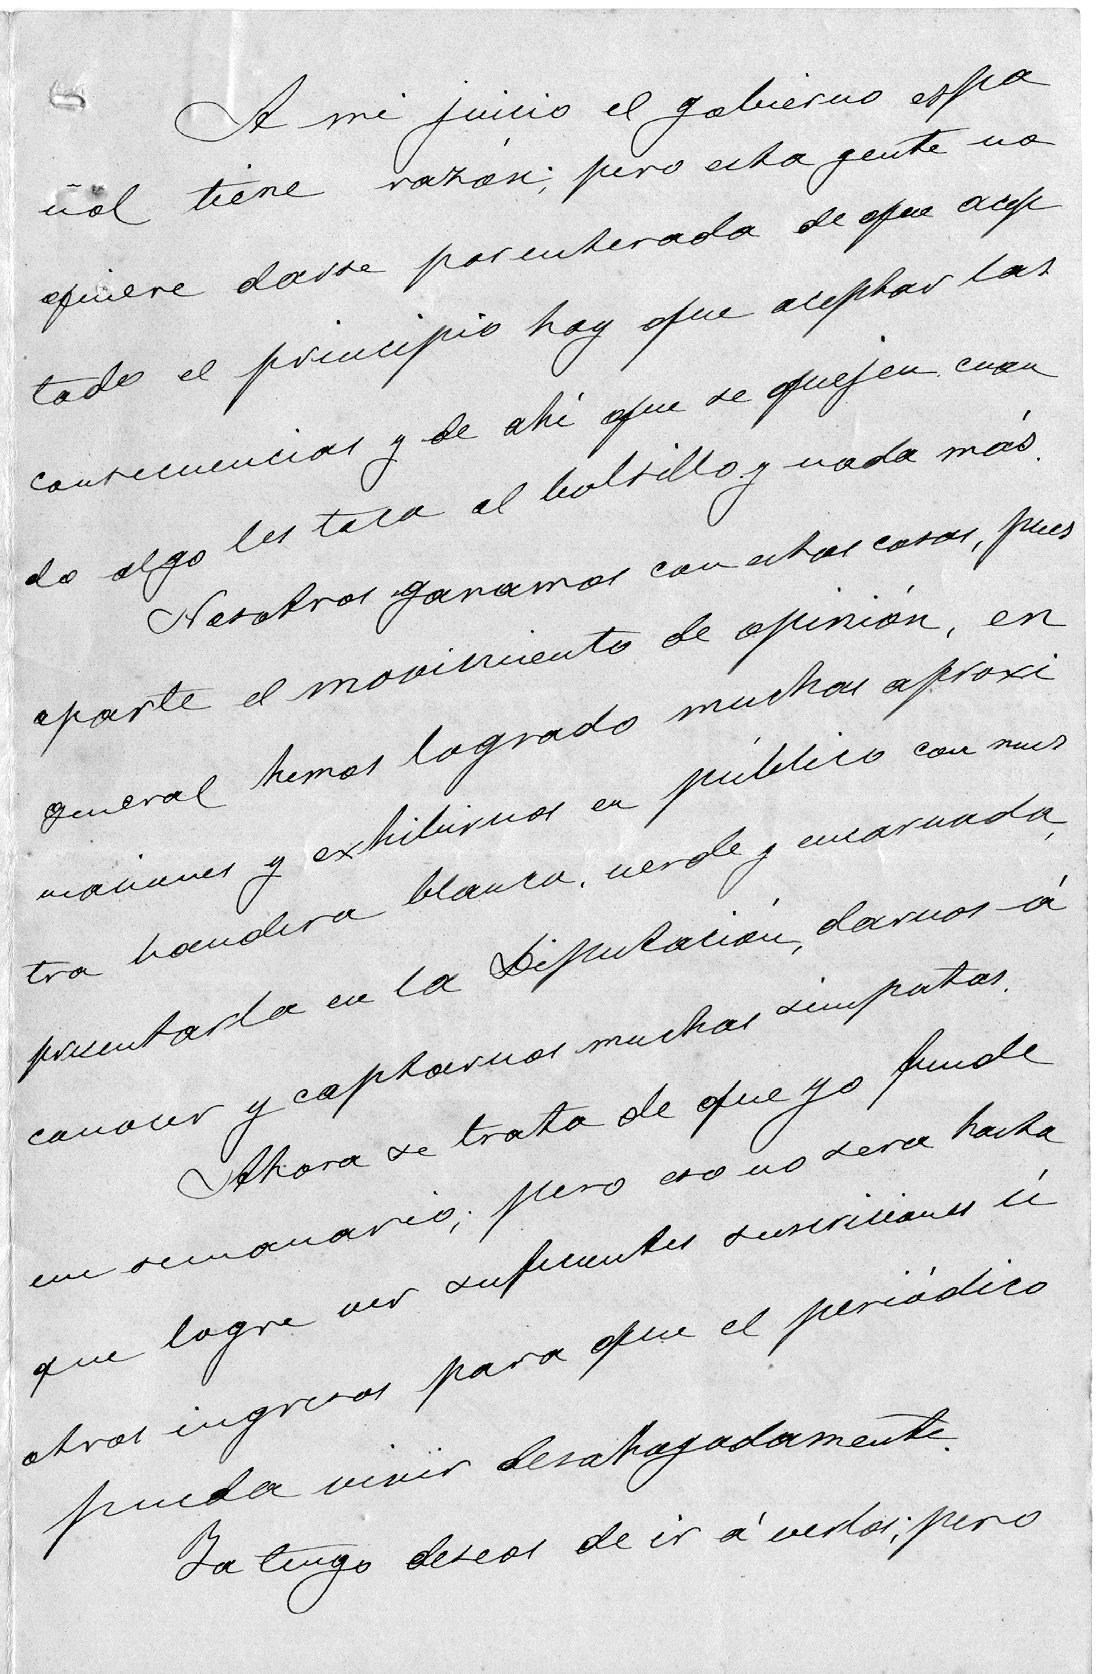 A mi juicio el gobierno espa
ñol tiene razón; pero esta gente no
quiere darse por enterada de que acep
tado el principio hay que aceptar las
consecuencias y de ahí que se quejen cuan
do algo les toca al bolsillo y nada más.
Nosotros ganamos con estas cosas, pues
aparte el movimiento de opinión, en
general hemos logrado muchas aproxi
maciones y exhibirnos en público con nues
tra bandera blanca, verde y encarnada,
presentarla en la Diputación, darnos á
conocer y captarnos muchas simpatas.
Ahora se trata de que yo funde
un semanario; pero eso no sera hasta
que logre ver suficientes suscriciones ú
otros ingresos para que el periódico
pueda vivir desahogadamente.
Ya tengo deseos de ir á verlos; pero